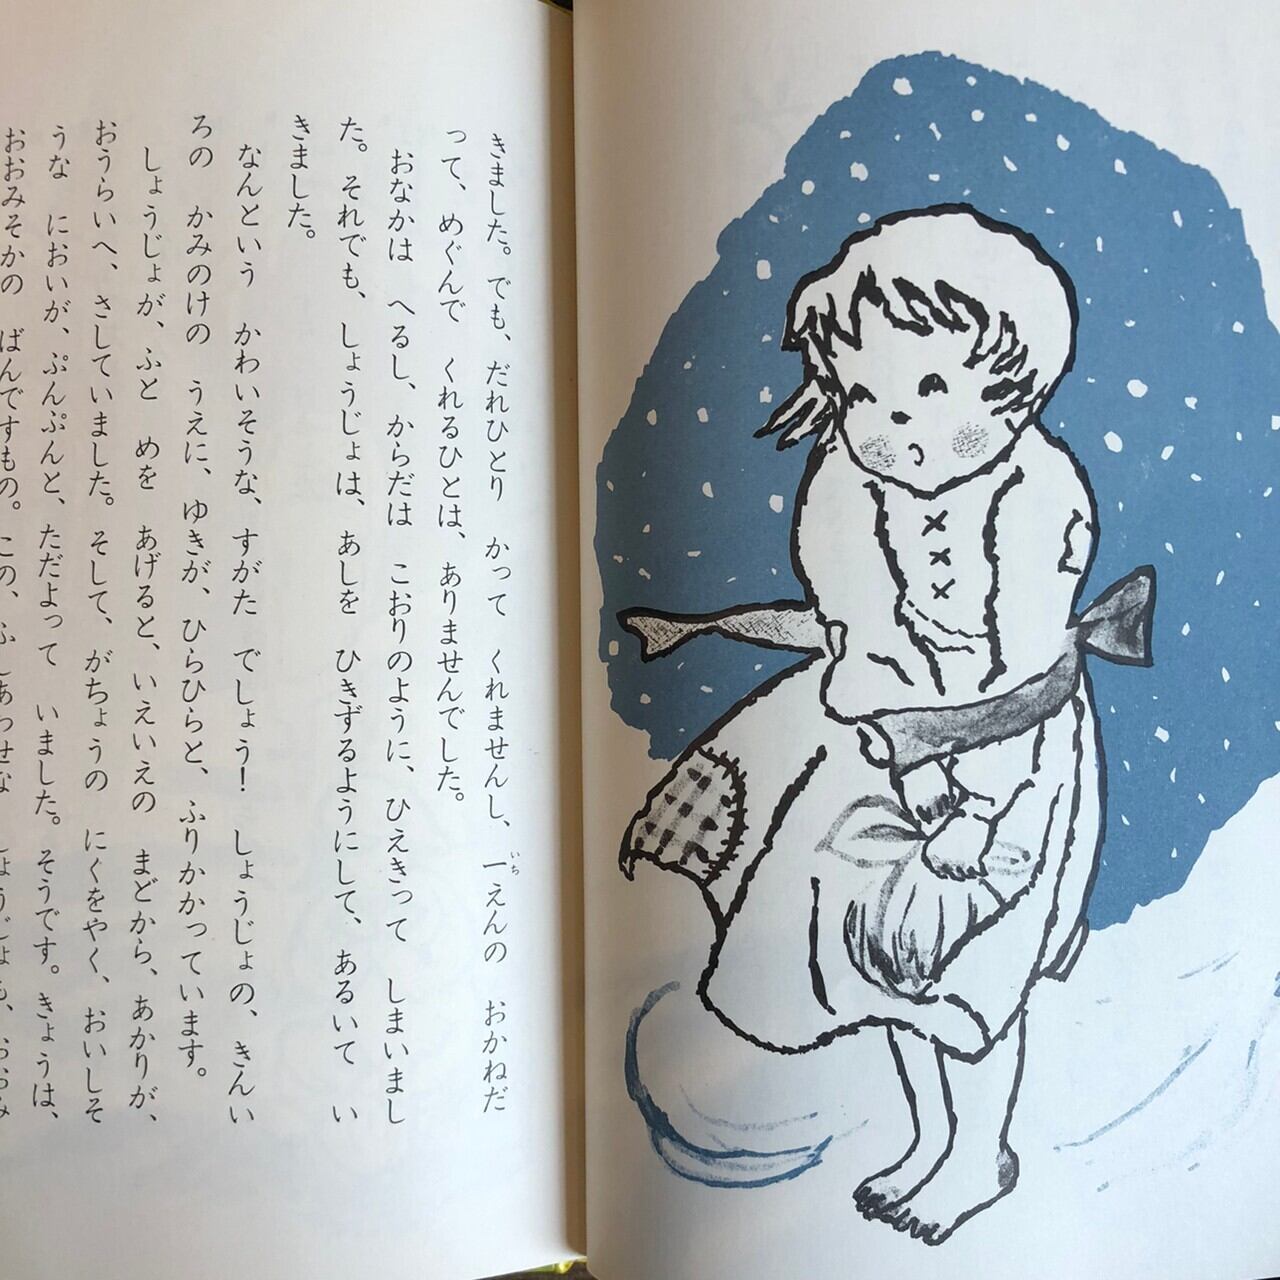 きました。でも、だれひとり　かって　くれませんし、一えんの　おかねだ
いち
って、めぐんで　くれるひとは、ありませんでした。
おなかは　へるし、からだは　こおりのように、ひえきって　しまいまし
た。それでも、しょうじょは、あしを　ひきずるようにして、あるいて　い
きました。
なんという　かわいそうな、すがた　でしょう！　しょうじょの、きんい
ろの　かみのけの　うえに、ゆきが、ひらひらと、ふりかかっています。
しょうじょが、ふと　めを　あげると、いえいえの　まどから、あかりが、
おうらいへ、さしていました。そして、がちょうの　にくをやく、おいしそ
うな　においが、ぷんぷんと、ただよって　いました。そうです。きょうは、
おおみそかの　ばんですもの。この、